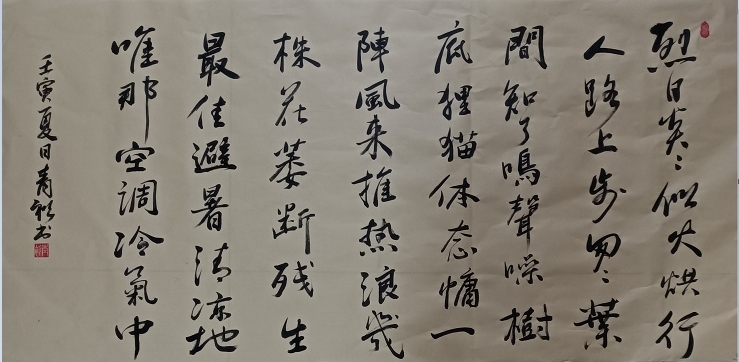 烈日炎々似火烘行
人路上步匆々葉
間知了鳴聲噪樹
底狸猫体态慵一
陣風来推热浪幾
株花萎断残生
最佳避暑清凉地
唯那空調冷氣中
壬寅夏日青书